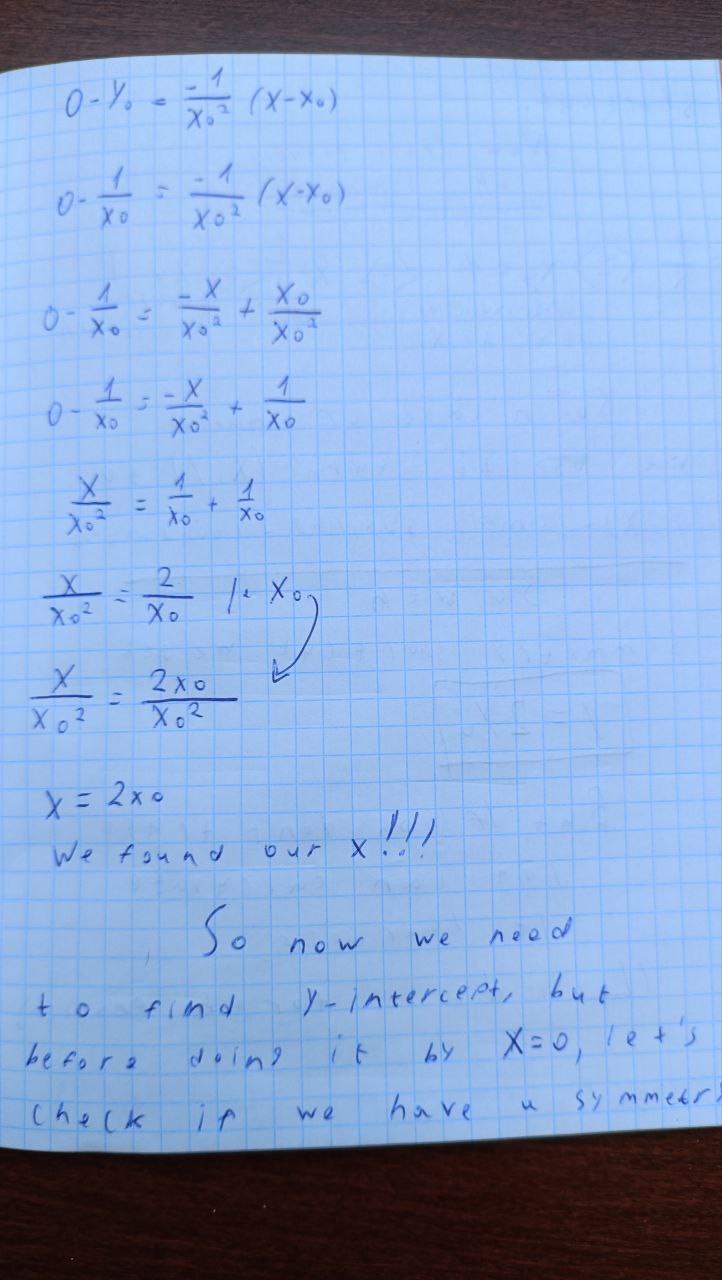 0 - y₀ = -1/x₀² (x - x₀)
0 - 1/x₀ = -1/x₀² (x - x₀)
0 - 1/x₀ = -x/x₀² + x₀/x₀²
0 - 1/x₀ = -x/x₀² + 1/x₀
x/x₀² = 1/x₀ + 1/x₀
x/x₀² = 2/x₀ |· x₀
x/x₀² = 2x₀/x₀²
x = 2x₀
We found our x!!!
So now we need
to find y-intercept, but
before doing it by x=0, let's
check if we have a symmetry